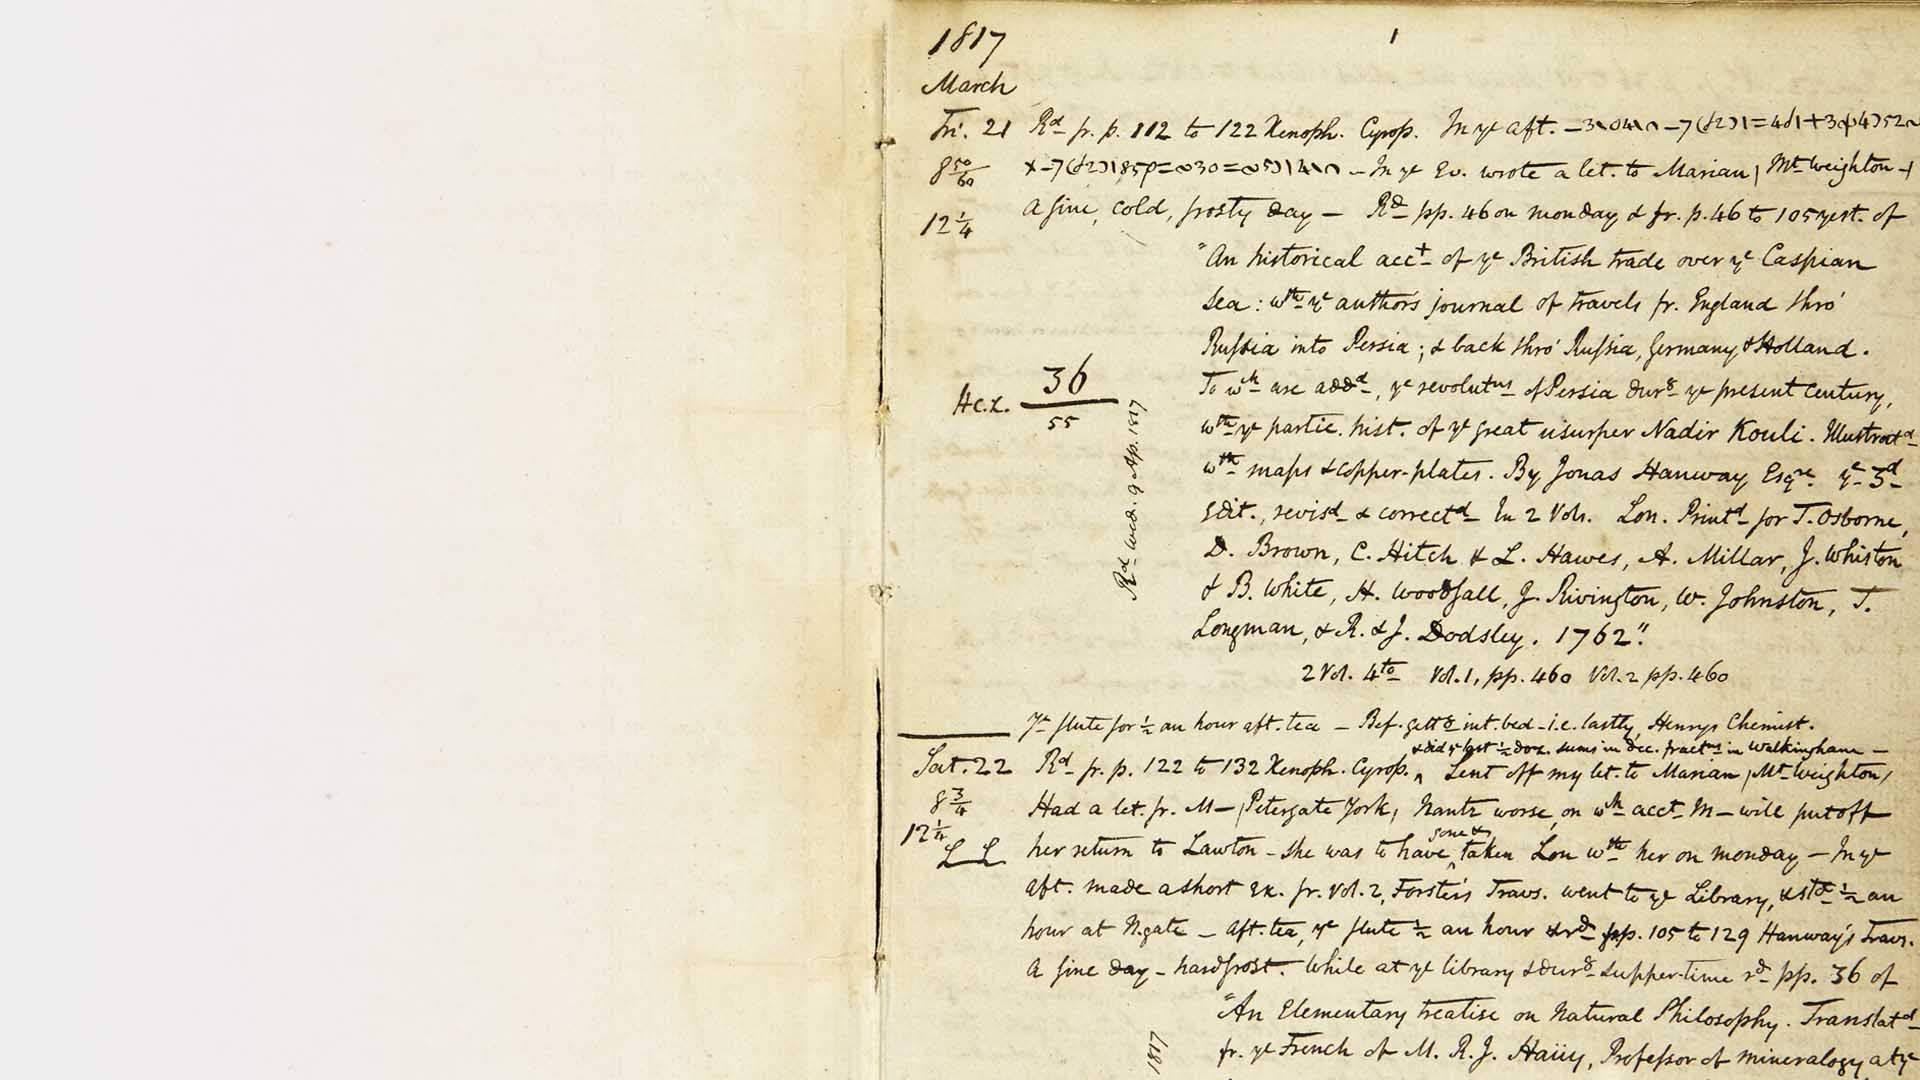 1817 1
March
Fri. 21 Rd fr. p. 112 to 122 Xenoph. Cyrop. In ye aft.
8 50/60 – In ye Ev. wrote a let. to Marian, Mt Weighton –
12 1/4 A fine, cold, frosty day – Rd pp. 46 on monday & fr. p. 46 to 105 yest. of
"An historical acct of ye British trade over ye Caspian
Sea: wth ye author's journal of travels fr. England thro'
Russia into Persia; & back thro' Russia, Germany & Holland.
To wh are addd, ye revolutns of Persia durg ye present century,
Hc.2. 36/55 wth ye partic. hist. of ye great usurper Nadir Kouli. Illustratd
wth maps & copper-plates. By Jonas Hanway Esqre. ye 3d
Edit., revisd & correctd In 2 Vols. Lon. Printd for T. Osborne,
D. Brown, C. Hitch & L. Hawes, A. Millar, J. Whiston
& B. White, H. Woodfall, J. Rivington, W. Johnston, T.
Longman, & R. & J. Dodsley. 1762".
Rd wed. 9 Ap. 1817
2 Vol. 4to Vol. 1, pp. 460 Vol. 2 pp. 460
Ye flute for 1/2 an hour aft. tea – Bef. gettg int. bed – i.e. lastly, Henrys Chemist.
& did ye last 1/2 doz. sums in dec. fractns in Walkinghame –
Sat. 22 Rd fr. p. 122 to 132 Xenoph. Cyrop. ‸ Sent off my let. to Marian, Mt Weighton,
8 3/4 Had a let. fr. M– , Petergate York, Nantz worse, on wh acct M– will put off
gone &
12 1/4 L L her return to Lawton – she was to have ‸ taken Lou wth her on monday – In ye
aft. made a short Ex. fr. Vol. 2, Forster's Travs. went to ye Library, & std 1/2 an
hour at N.gate – aft. tea, ye flute 1/2 an hour & rd pp. 105 to 129 Hanway's Travs.
A fine day – hard frost. While at ye library & durg supper-time rd pp. 36 of
"An Elementary treatise on Natural Philosophy. Translatd
fr. ye French of M. R. J. Haüy, Professor of mineralogy at ye
1817